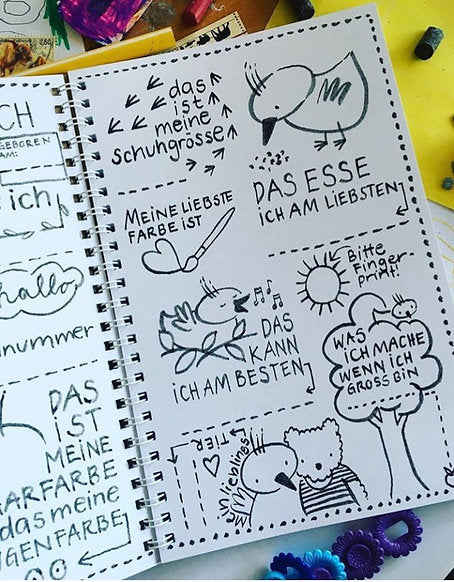 CH
GEBOREN
AM:
ich
hallo,
nummer
DAS
IST
MEINE
ARFARBE
das meine
GENFARBE
das
ist
meine
schuhgrösse
DAS ESSE
ICH AM LIEBSTEN
MEINE LIEBSTE
FARBE IST
Bitte
Finger-
print!
DAS
KANN
ICH AM BESTEN
WAS
ICH MACHE
WENN ICH
GROSS BIN
Mein lieblings
TIER